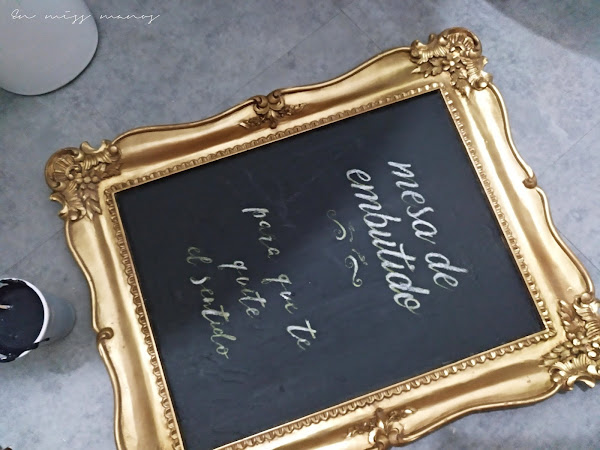 En miss manos
mesa de
embutido
para que te
quite
el sentido